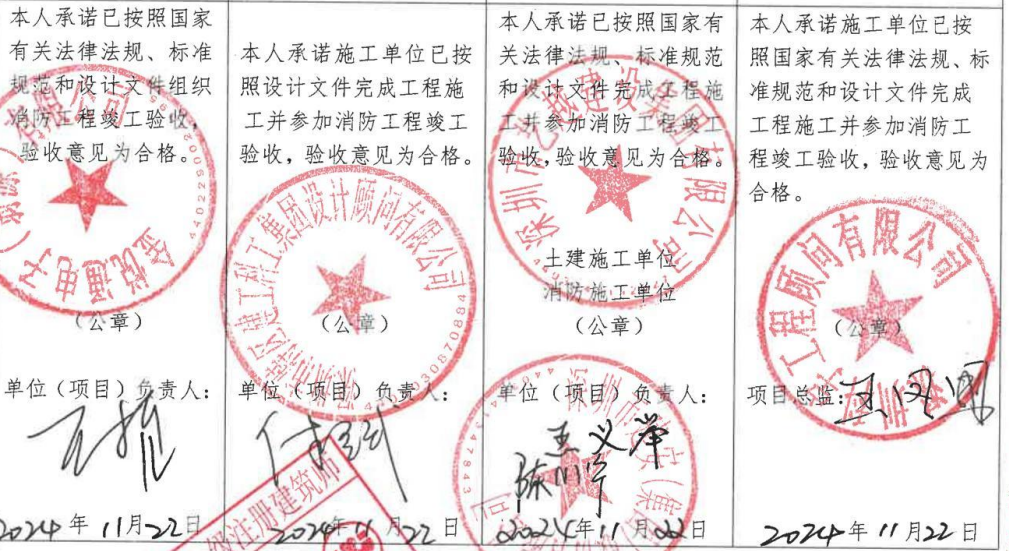 本人承诺已按照国家
有关法律法规、标准
规范和设计文件组织
消防工程竣工验收，
验收意见为合格。
(公章)
单位（项目）负责人：
2024年 11月22日
本人承诺施工单位已按
照设计文件完成工程施
工并参加消防工程竣工
验收，验收意见为合格。
(公章)
单位（项目）负责人：
2024年11月22日
注册建筑师
本人承诺已按照国家有
关法律法规、标准规范
和设计文件完成工程施
工并参加消防工程竣工
验收，验收意见为合格。
土建施工单位
消防施工单位
(公章)
单位（项目）负责人：
王义举
2024年11月22日
本人承诺施工单位已按
照国家有关法律法规、标
准规范和设计文件完成
工程施工并参加消防工
程竣工验收，验收意见为
合格。
工程顾问有限公司
(公章)
项目总监：
2024年11月22日